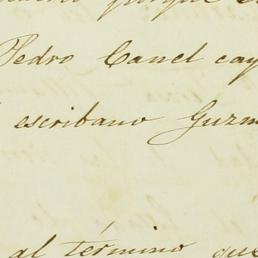 Pedro Canel cay
escribano Guzm
al término que